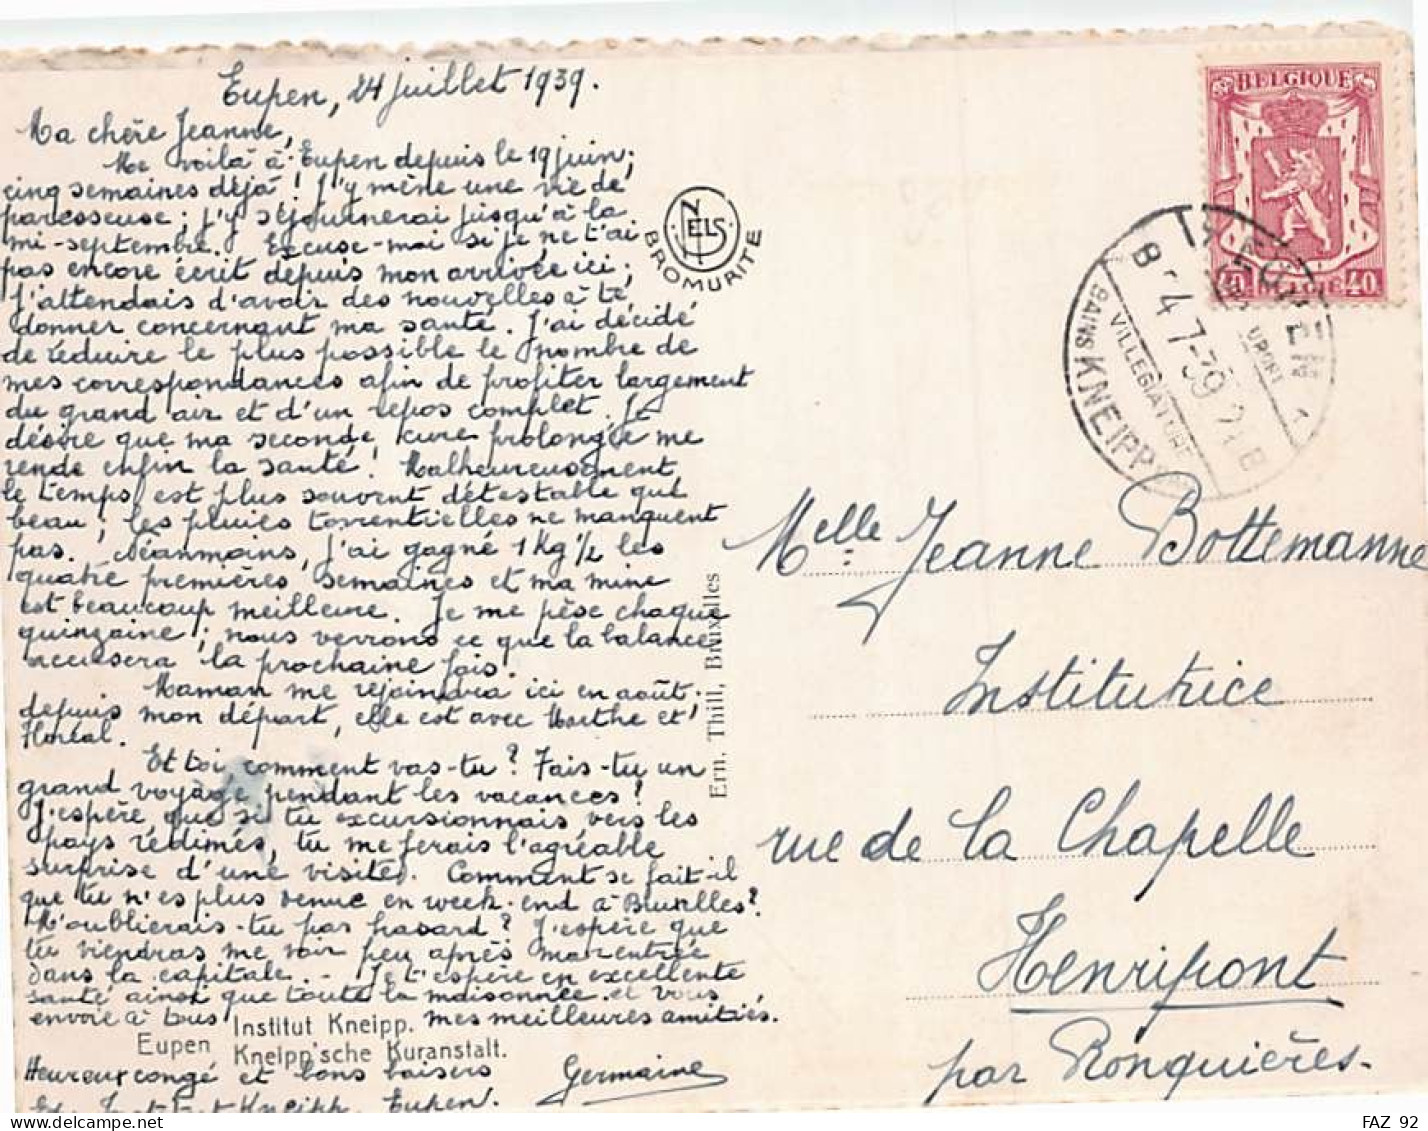 Eupen, 24 juillet 1939.
Ma chère Jeanne,
Me voilà à Eupen depuis le 19 juin;
cinq semaines déjà! J'y mène une vie de
paresseuse; j'y séjournerai jusqu'à la
mi-septembre. Excuse-moi si je ne t'ai
pas encore écrit depuis mon arrivée ici;
j'attendais d'avoir des nouvelles à te
donner concernant ma santé. J'ai décidé
de réduire le plus possible le nombre de
mes correspondances afin de profiter largement
du grand air et d'un repos complet. Je
désire que ma seconde kure prolongée me
rende enfin la santé! Malheureusement
le temps est plus souvent détestable que
beau; les pluies torrentielles ne manquent
pas. Néanmoins, j'ai gagné 1 Kg ½ les
quatre premières semaines et ma mine
est beaucoup meilleure. Je me pèse chaque
quinzaine; nous verrons ce que la balance
accusera la prochaine fois.
Maman me rejoindra ici en août;
depuis mon départ, elle est avec Marthe et
Floréal.
Et toi comment vas-tu? Fais-tu un
grand voyage pendant les vacances?
J'espère que si tu excursionnais vers les
pays rédimés, tu me ferais l'agréable
surprise d'une visite. Comment se fait-il
que tu n'es plus venue en week-end à Bruxelles?
M'oublierais-tu par hasard? J'espère que
tu viendras me voir peu après ma rentrée
dans la capitale. - Je t'espère en excellente
santé ainsi que toute la maisonnée et vous
envoie à tous mes meilleures amitiés.
Institut Kneipp.
Eupen Kneipp'sche Kuranstalt.
Heureux congé et bons baisers
Germaine
Institut Kneipp, Eupen.
NELS
BROMURITE
Ern. Thill, Bruxelles
BELGIQUE
40 BELGIE 40
B
4 7-39
BAINS KNEIPP
VILLEGIATURE
Melle Jeanne Bottemanne
Institutrice
rue de la Chapelle
Henripont
par Ronquières.
FAZ 92